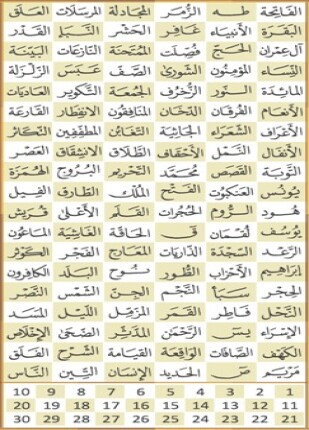 الفاتحة طه الزمر المجادلة المرسلات العلق
البقرة الأنبياء غافر الحشر النبأ القدر
آل عمران الحج فصلت الممتحنة النازعات البينة
النساء المؤمنون الشورى الصف عبس الزلزلة
المائدة النور الزخرف الجمعة التكوير العاديات
الأنعام الفرقان الدخان المنافقون الانفطار القارعة
الأعراف الشعراء الجاثية التغابن المطففين التكاثر
الأنفال النمل الأحقاف الطلاق الانشقاق العصر
التوبة القصص محمد التحريم البروج الهمزة
يونس العنكبوت الفتح الملك الطارق الفيل
هود الروم الحجرات القلم الأعلى قريش
يوسف لقمان ق الحاقة الغاشية الماعون
الرعد السجدة الذاريات المعارج الفجر الكوثر
إبراهيم الأحزاب الطور نوح البلد الكافرون
الحجر سبأ النجم الجن الشمس النصر
النحل فاطر القمر المزمل الليل المسد
الإسراء يس الرحمن المدثر الضحى الإخلاص
الكهف الصافات الواقعة القيامة الشرح الفلق
مريم ص الحديد الإنسان التين الناس
1 2 3 4 5 6 7 8 9 10
11 12 13 14 15 16 17 18 19 20
21 22 23 24 25 26 27 28 29 30